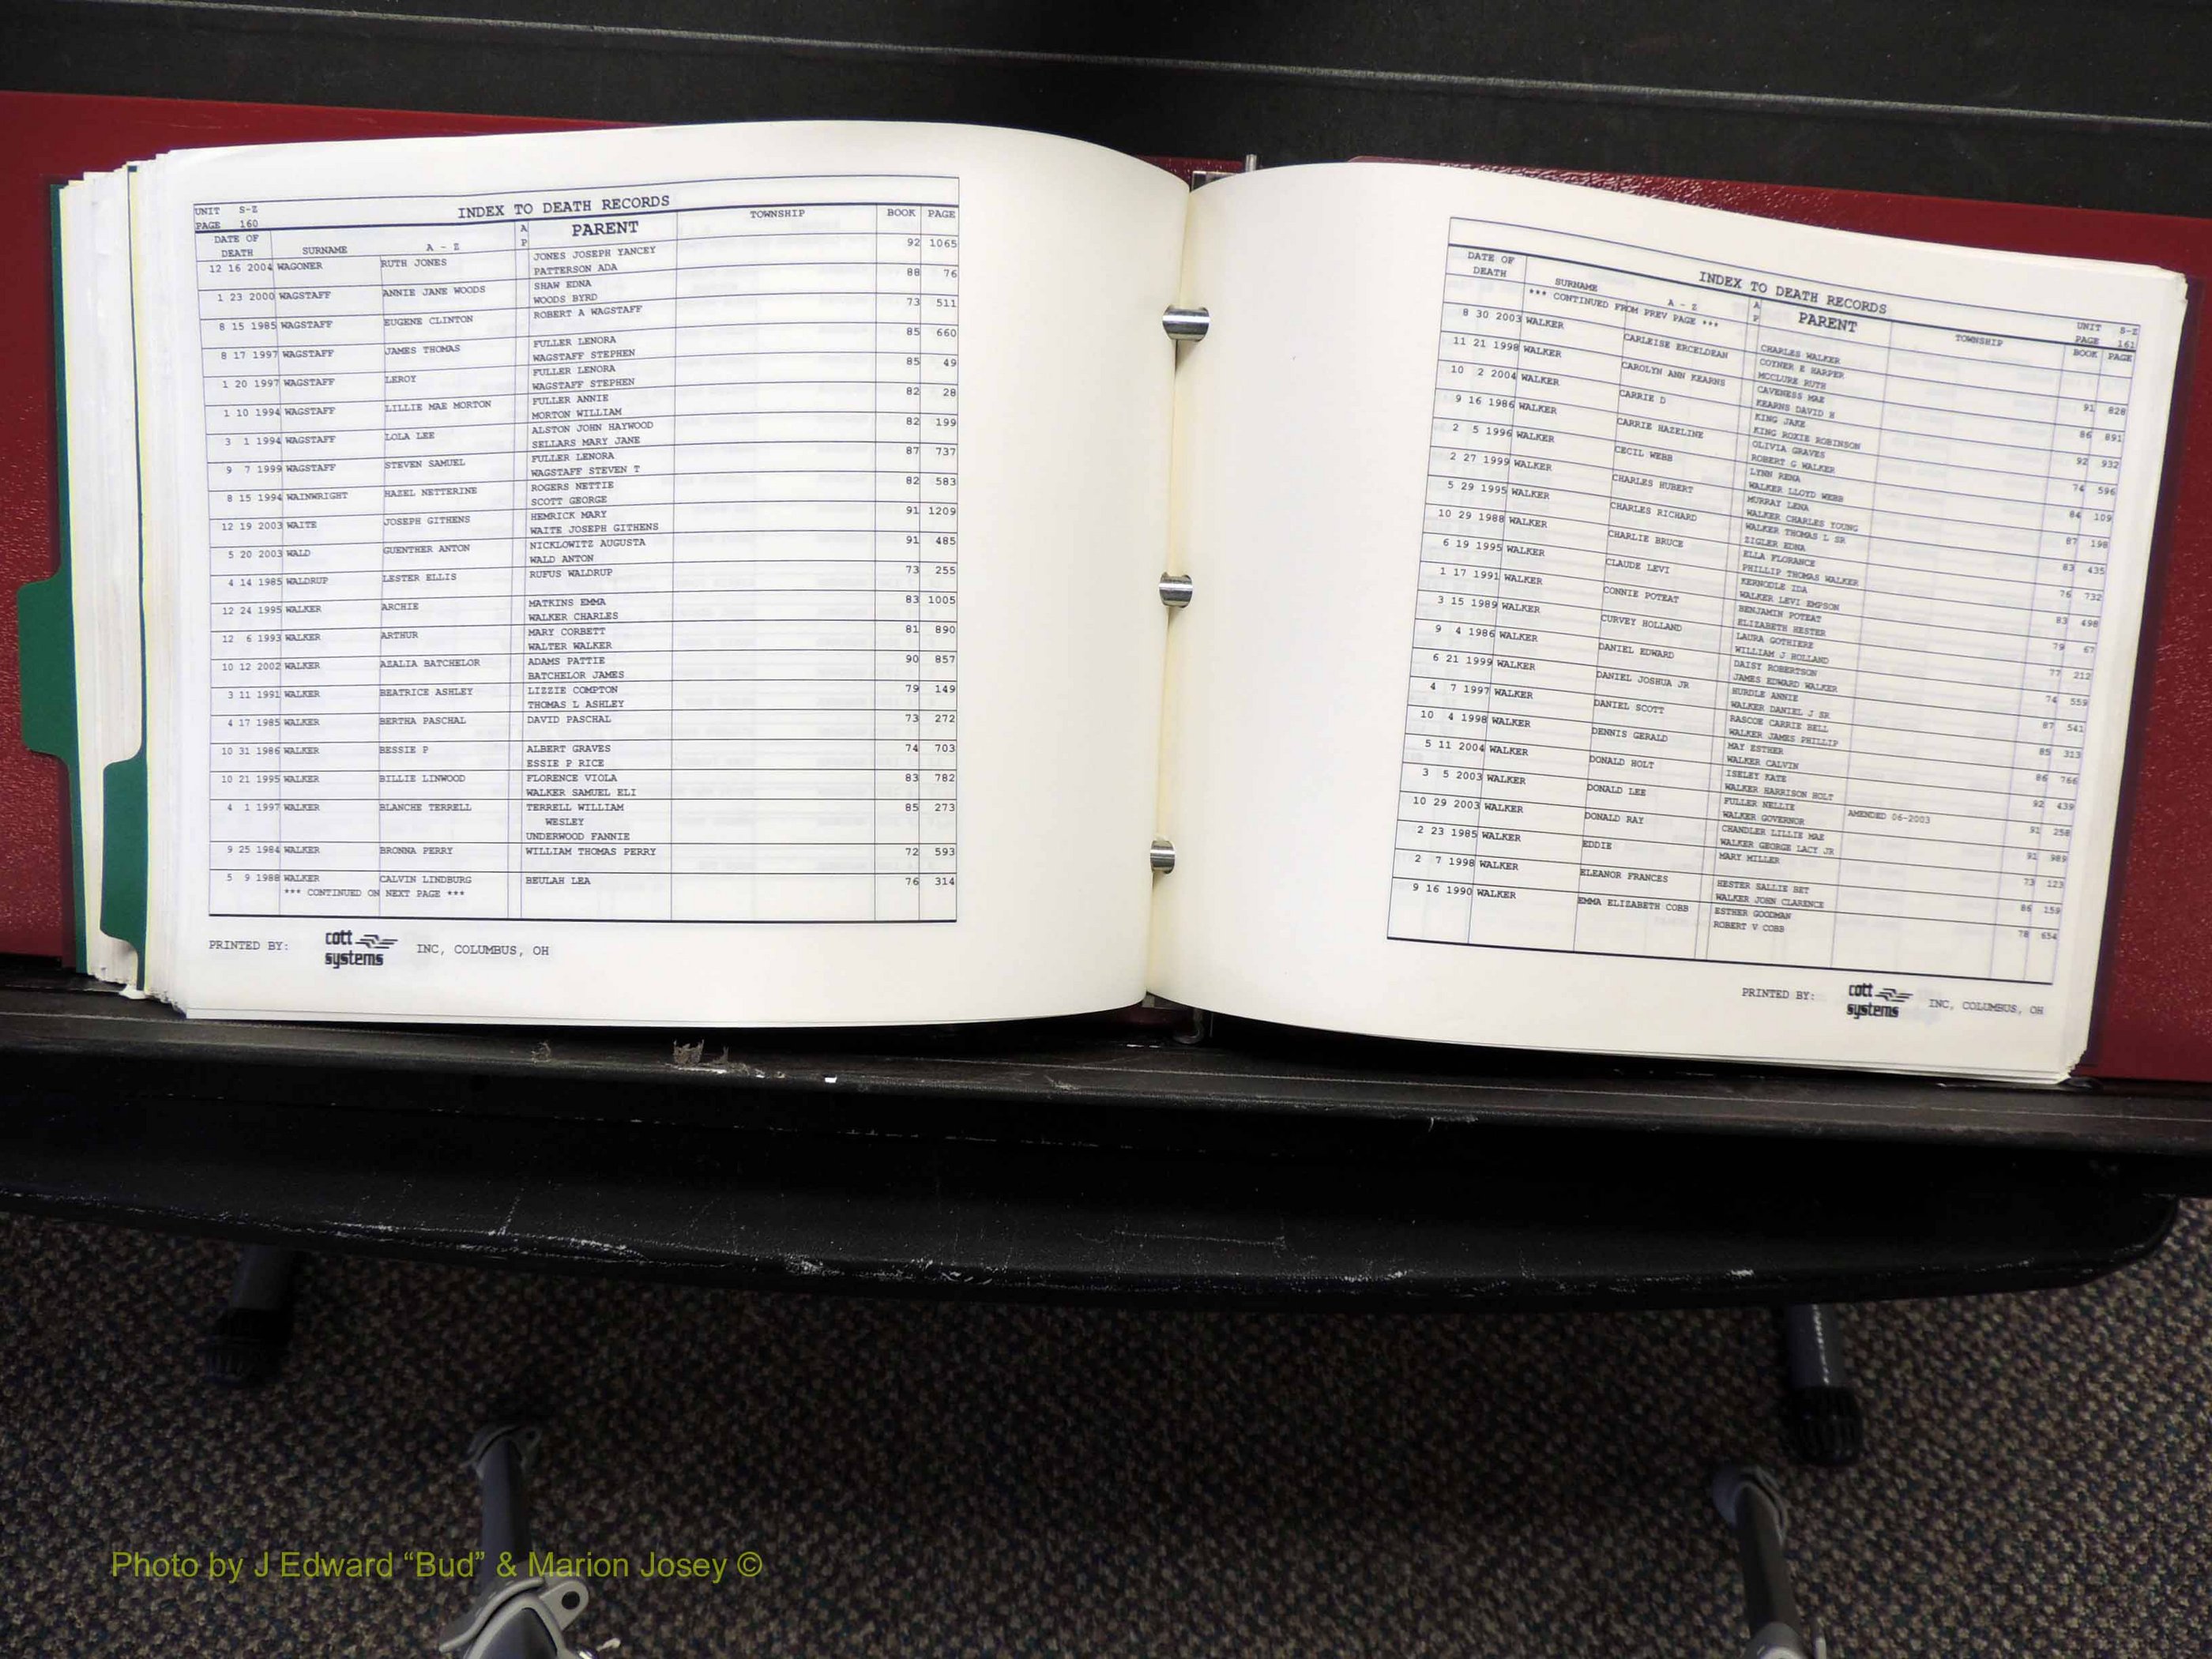 UNIT S-Z
PAGE 160
INDEX TO DEATH RECORDS
DATE OF DEATH SURNAME A - Z A P PARENT TOWNSHIP BOOK PAGE
12 16 2004 WAGONER RUTH JONES JONES JOSEPH YANCEY 92 1065
PATTERSON ADA
1 23 2000 WAGSTAFF ANNIE JANE WOODS SHAW EDNA 88 76
WOODS BYRD
8 15 1985 WAGSTAFF EUGENE CLINTON ROBERT A WAGSTAFF 73 511
8 17 1997 WAGSTAFF JAMES THOMAS FULLER LENORA 85 660
WAGSTAFF STEPHEN
1 20 1997 WAGSTAFF LEROY FULLER LENORA 85 49
WAGSTAFF STEPHEN
1 10 1994 WAGSTAFF LILLIE MAE MORTON FULLER ANNIE 82 28
MORTON WILLIAM
3 1 1994 WAGSTAFF LOLA LEE ALSTON JOHN HAYWOOD 82 199
SELLARS MARY JANE
9 7 1999 WAGSTAFF STEVEN SAMUEL FULLER LENORA 87 737
WAGSTAFF STEVEN T
8 15 1994 WAINWRIGHT HAZEL NETTERINE ROGERS NETTIE 82 583
SCOTT GEORGE
12 19 2003 WAITE JOSEPH GITHENS HEMRICK MARY 91 1209
WAITE JOSEPH GITHENS
5 20 2003 WALD GUENTHER ANTON NICKLOWITZ AUGUSTA 91 485
WALD ANTON
4 14 1985 WALDRUP LESTER ELLIS RUFUS WALDRUP 73 255
12 24 1995 WALKER ARCHIE MATKINS EMMA 83 1005
WALKER CHARLES
12 6 1993 WALKER ARTHUR MARY CORBETT 81 890
WALTER WALKER
10 12 2002 WALKER AZALIA BATCHELOR ADAMS PATTIE 90 857
BATCHELOR JAMES
3 11 1991 WALKER BEATRICE ASHLEY LIZZIE COMPTON 79 149
THOMAS L ASHLEY
4 17 1985 WALKER BERTHA PASCHAL DAVID PASCHAL 73 272
10 31 1986 WALKER BESSIE P ALBERT GRAVES 74 703
ESSIE P RICE
10 21 1995 WALKER BILLIE LINWOOD FLORENCE VIOLA 83 782
WALKER SAMUEL ELI
4 1 1997 WALKER BLANCHE TERRELL TERRELL WILLIAM 85 273
WESLEY
UNDERWOOD FANNIE
9 25 1984 WALKER BRONNA PERRY WILLIAM THOMAS PERRY 72 593
5 9 1988 WALKER CALVIN LINDBURG BEULAH LEA 76 314
*** CONTINUED ON NEXT PAGE ***
PRINTED BY: cott systems INC, COLUMBUS, OH
INDEX TO DEATH RECORDS
UNIT S-Z
PAGE 161
DATE OF DEATH SURNAME A - Z A P PARENT TOWNSHIP BOOK PAGE
*** CONTINUED FROM PREV PAGE ***
CHARLES WALKER
8 30 2003 WALKER CARLEISE ERCELDEAN COTNER E HARPER 91 828
MCCLURE RUTH
11 21 1998 WALKER CAROLYN ANN KEARNS CAVENESS MAE 86 891
KEARNS DAVID H
10 2 2004 WALKER CARRIE D KING JAKE 92 932
KING ROXIE ROBINSON
9 16 1986 WALKER CARRIE HAZELINE OLIVIA GRAVES 74 596
ROBERT G WALKER
2 5 1996 WALKER CECIL WEBB LYNN RENA 84 109
WALKER LLOYD WEBB
2 27 1999 WALKER CHARLES HUBERT MURRAY LENA 87 198
WALKER CHARLES YOUNG
5 29 1995 WALKER CHARLES RICHARD WALKER THOMAS L SR 83 435
ZIGLER EDNA
10 29 1988 WALKER CHARLIE BRUCE ELLA FLORANCE 76 732
PHILLIP THOMAS WALKER
6 19 1995 WALKER CLAUDE LEVI KERNODLE IDA 83 498
WALKER LEVI EMPSON
1 17 1991 WALKER CONNIE POTEAT BENJAMIN POTEAT 79 67
ELIZABETH HESTER
3 15 1989 WALKER CURVEY HOLLAND LAURA GOTHIERE 77 212
WILLIAM J HOLLAND
9 4 1986 WALKER DANIEL EDWARD DAISY ROBERTSON 74 559
JAMES EDWARD WALKER
6 21 1999 WALKER DANIEL JOSHUA JR HURDLE ANNIE 87 541
WALKER DANIEL J SR
4 7 1997 WALKER DANIEL SCOTT RASCOE CARRIE BELL 85 313
WALKER JAMES PHILLIP
10 4 1998 WALKER DENNIS GERALD MAY ESTHER 86 766
WALKER CALVIN
5 11 2004 WALKER DONALD HOLT ISELEY KATE 92 439
WALKER HARRISON HOLT
3 5 2003 WALKER DONALD LEE FULLER NELLIE AMENDED 06-2003 91 258
WALKER GOVERNOR
10 29 2003 WALKER DONALD RAY CHANDLER LILLIE MAE 91 989
WALKER GEORGE LACY JR
2 23 1985 WALKER EDDIE MARY MILLER 73 123
2 7 1998 WALKER ELEANOR FRANCES HESTER SALLIE BET 86 159
WALKER JOHN CLARENCE
9 16 1990 WALKER EMMA ELIZABETH COBB ESTHER GOODMAN 78 654
ROBERT V COBB
PRINTED BY: cott systems INC, COLUMBUS, OH
Photo by J Edward “Bud” & Marion Josey ©